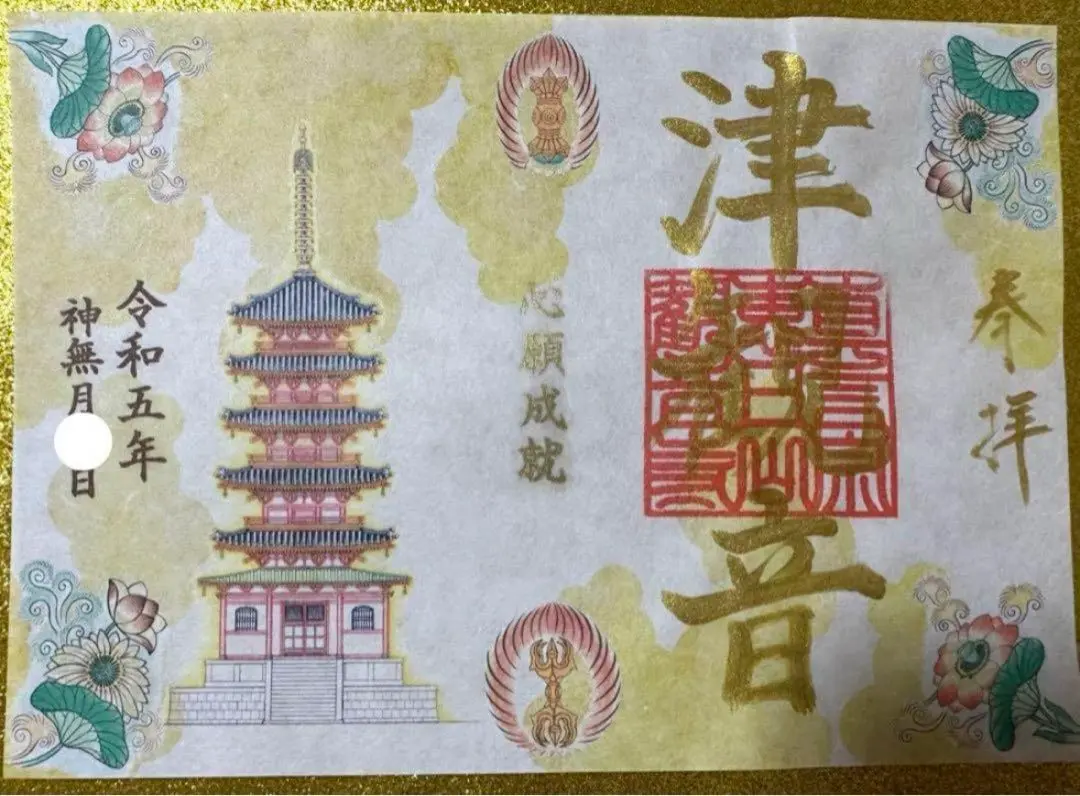 奉拝
津観音
心願成就
令和五年
神無月 日